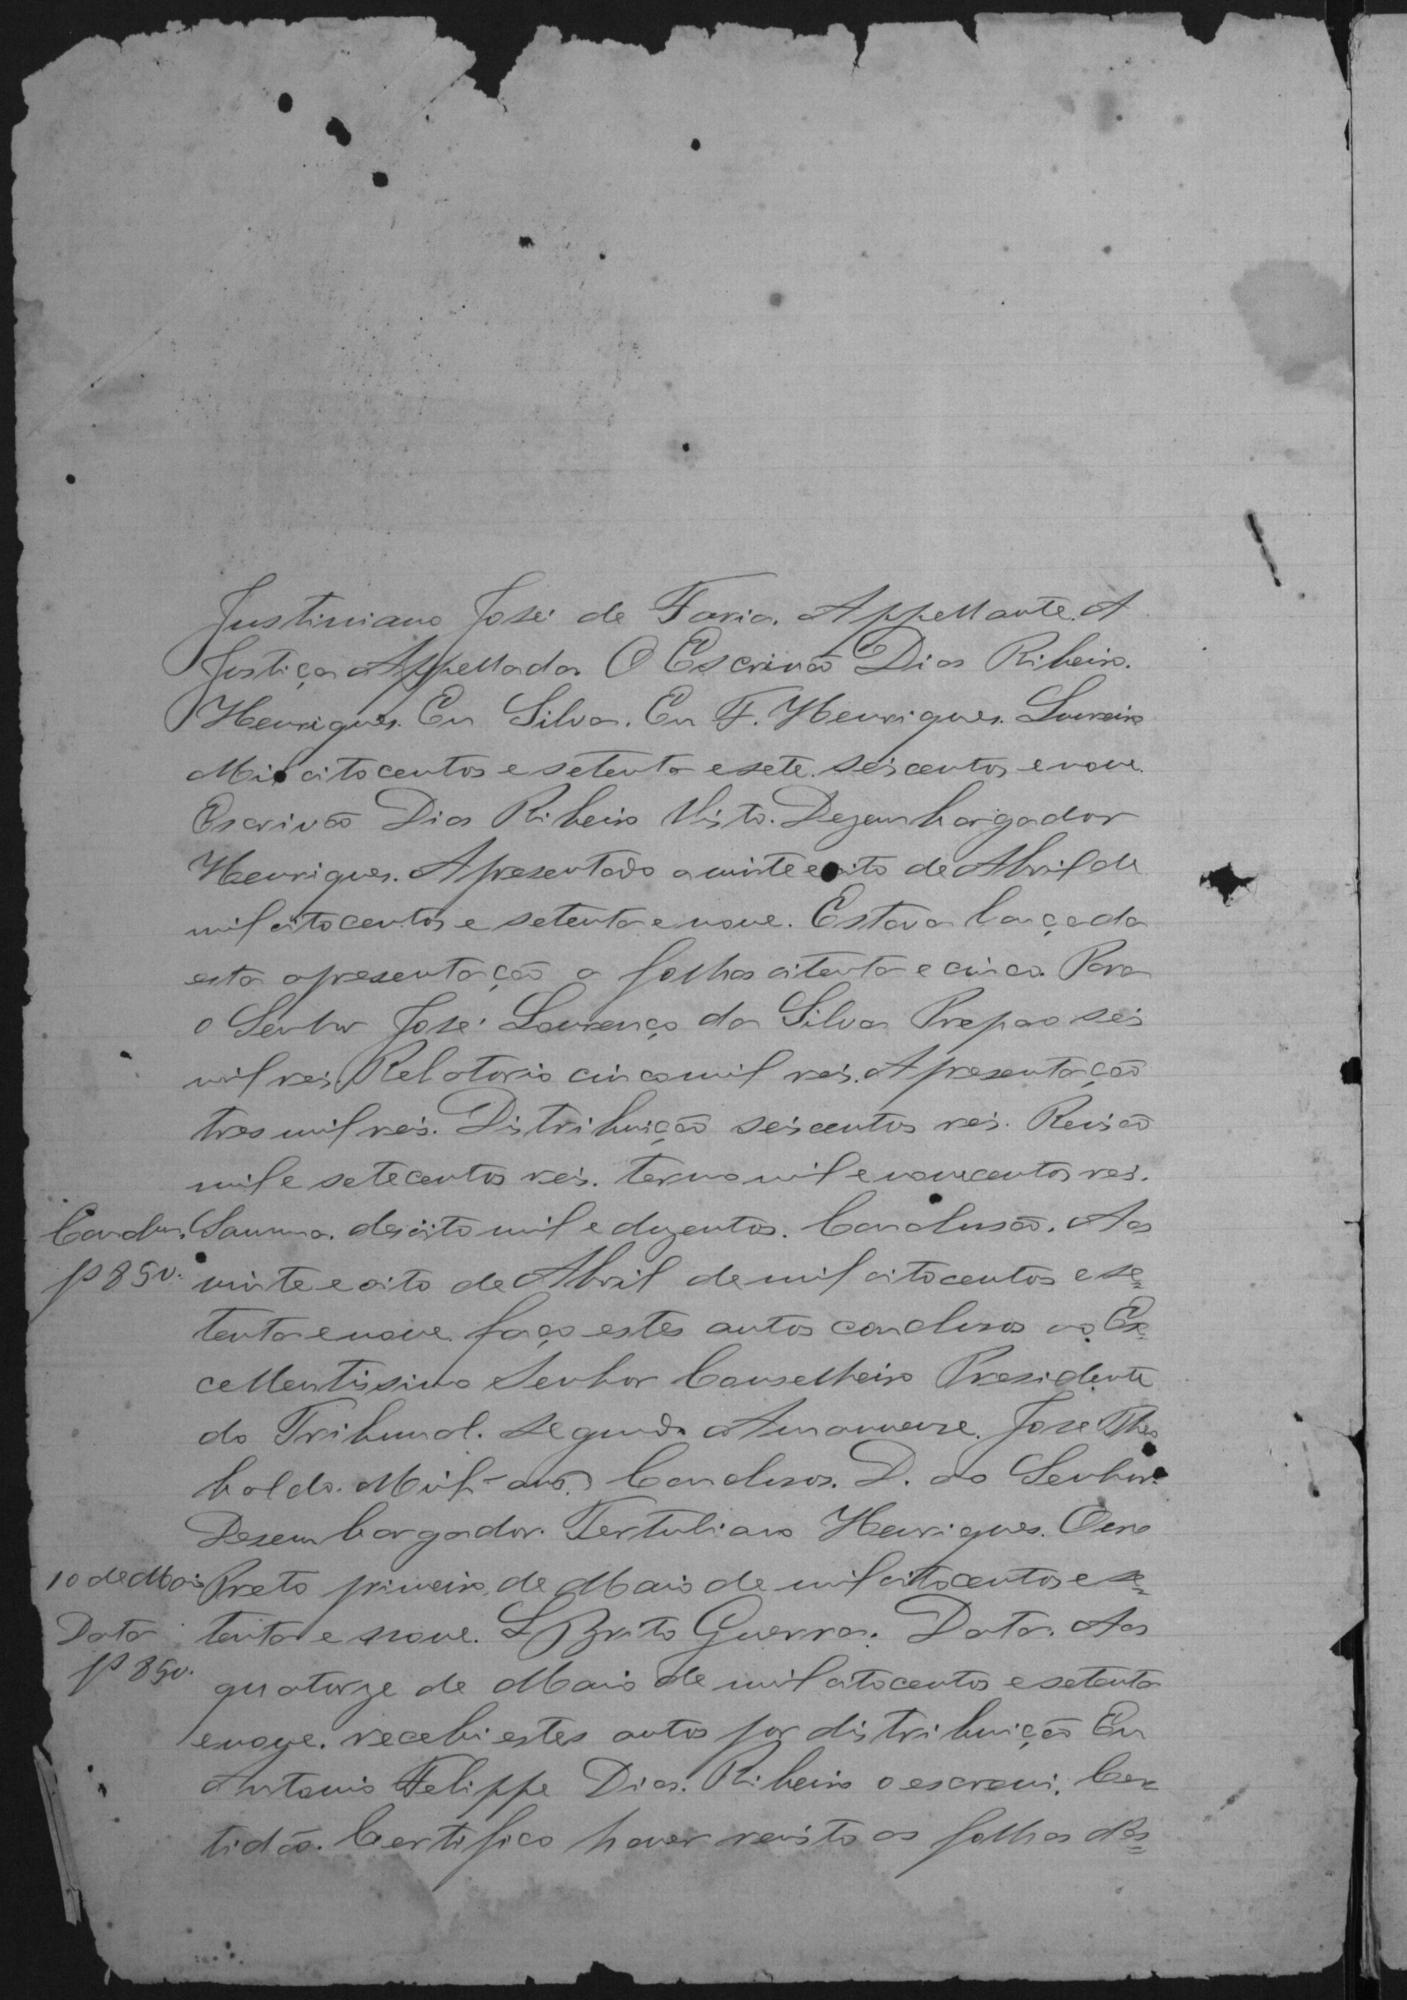 Justiniano José de Faria. Appellante. A
Justiça Appellada. O Escrivão Dias Ribeiro.
Henriques. Eu Silva. Eu F. Henriques. Loureiro
Mil oitocentos e setenta e sete. seiscentos e nove.
Escrivão Dias Ribeiro Visto. Dezembargador
Henriques. Apresentado a vinte e oito de Abril de
mil oitocentos e setenta e nove. Estava lançada
esta apresentação a folhas oitenta e cinco. Para
o Senhor José Lourenço da Silva Preparo seis
mil reis. Relatorio cinco mil reis. Apresentação
tres mil reis. Distribuição seiscentos reis. Revisão
mil e setecentos reis. termo mil e novecentos reis.
Conclus. Somma. desoito mil e duzentos. Conclusão. Aos
p 85v. vinte e oito de Abril de mil oitocentos e se=
tenta e nove faço estes autos conclusos ao Ex=
cellentissimo Senhor Conselheiro Presidente
do Tribunal. Segundo Amanuense. José Theo
baldo. Conclusos. D. ao Senhor.
Desembargador. Tertuliano Henriques. Ouro
10 de Maio Preto primeiro de Maio de mil oitocentos e se=
Data tenta e nove. L Brito Guerra. Data. Aos
p 85v. quatorze de Maio de mil oitocentos e setenta
e nove. recebi estes autos por distribuição Eu
Antonio Felippe Dias. Ribeiro o escrevi. Cer=
tidão. Certifico haver revisto as folhas des=